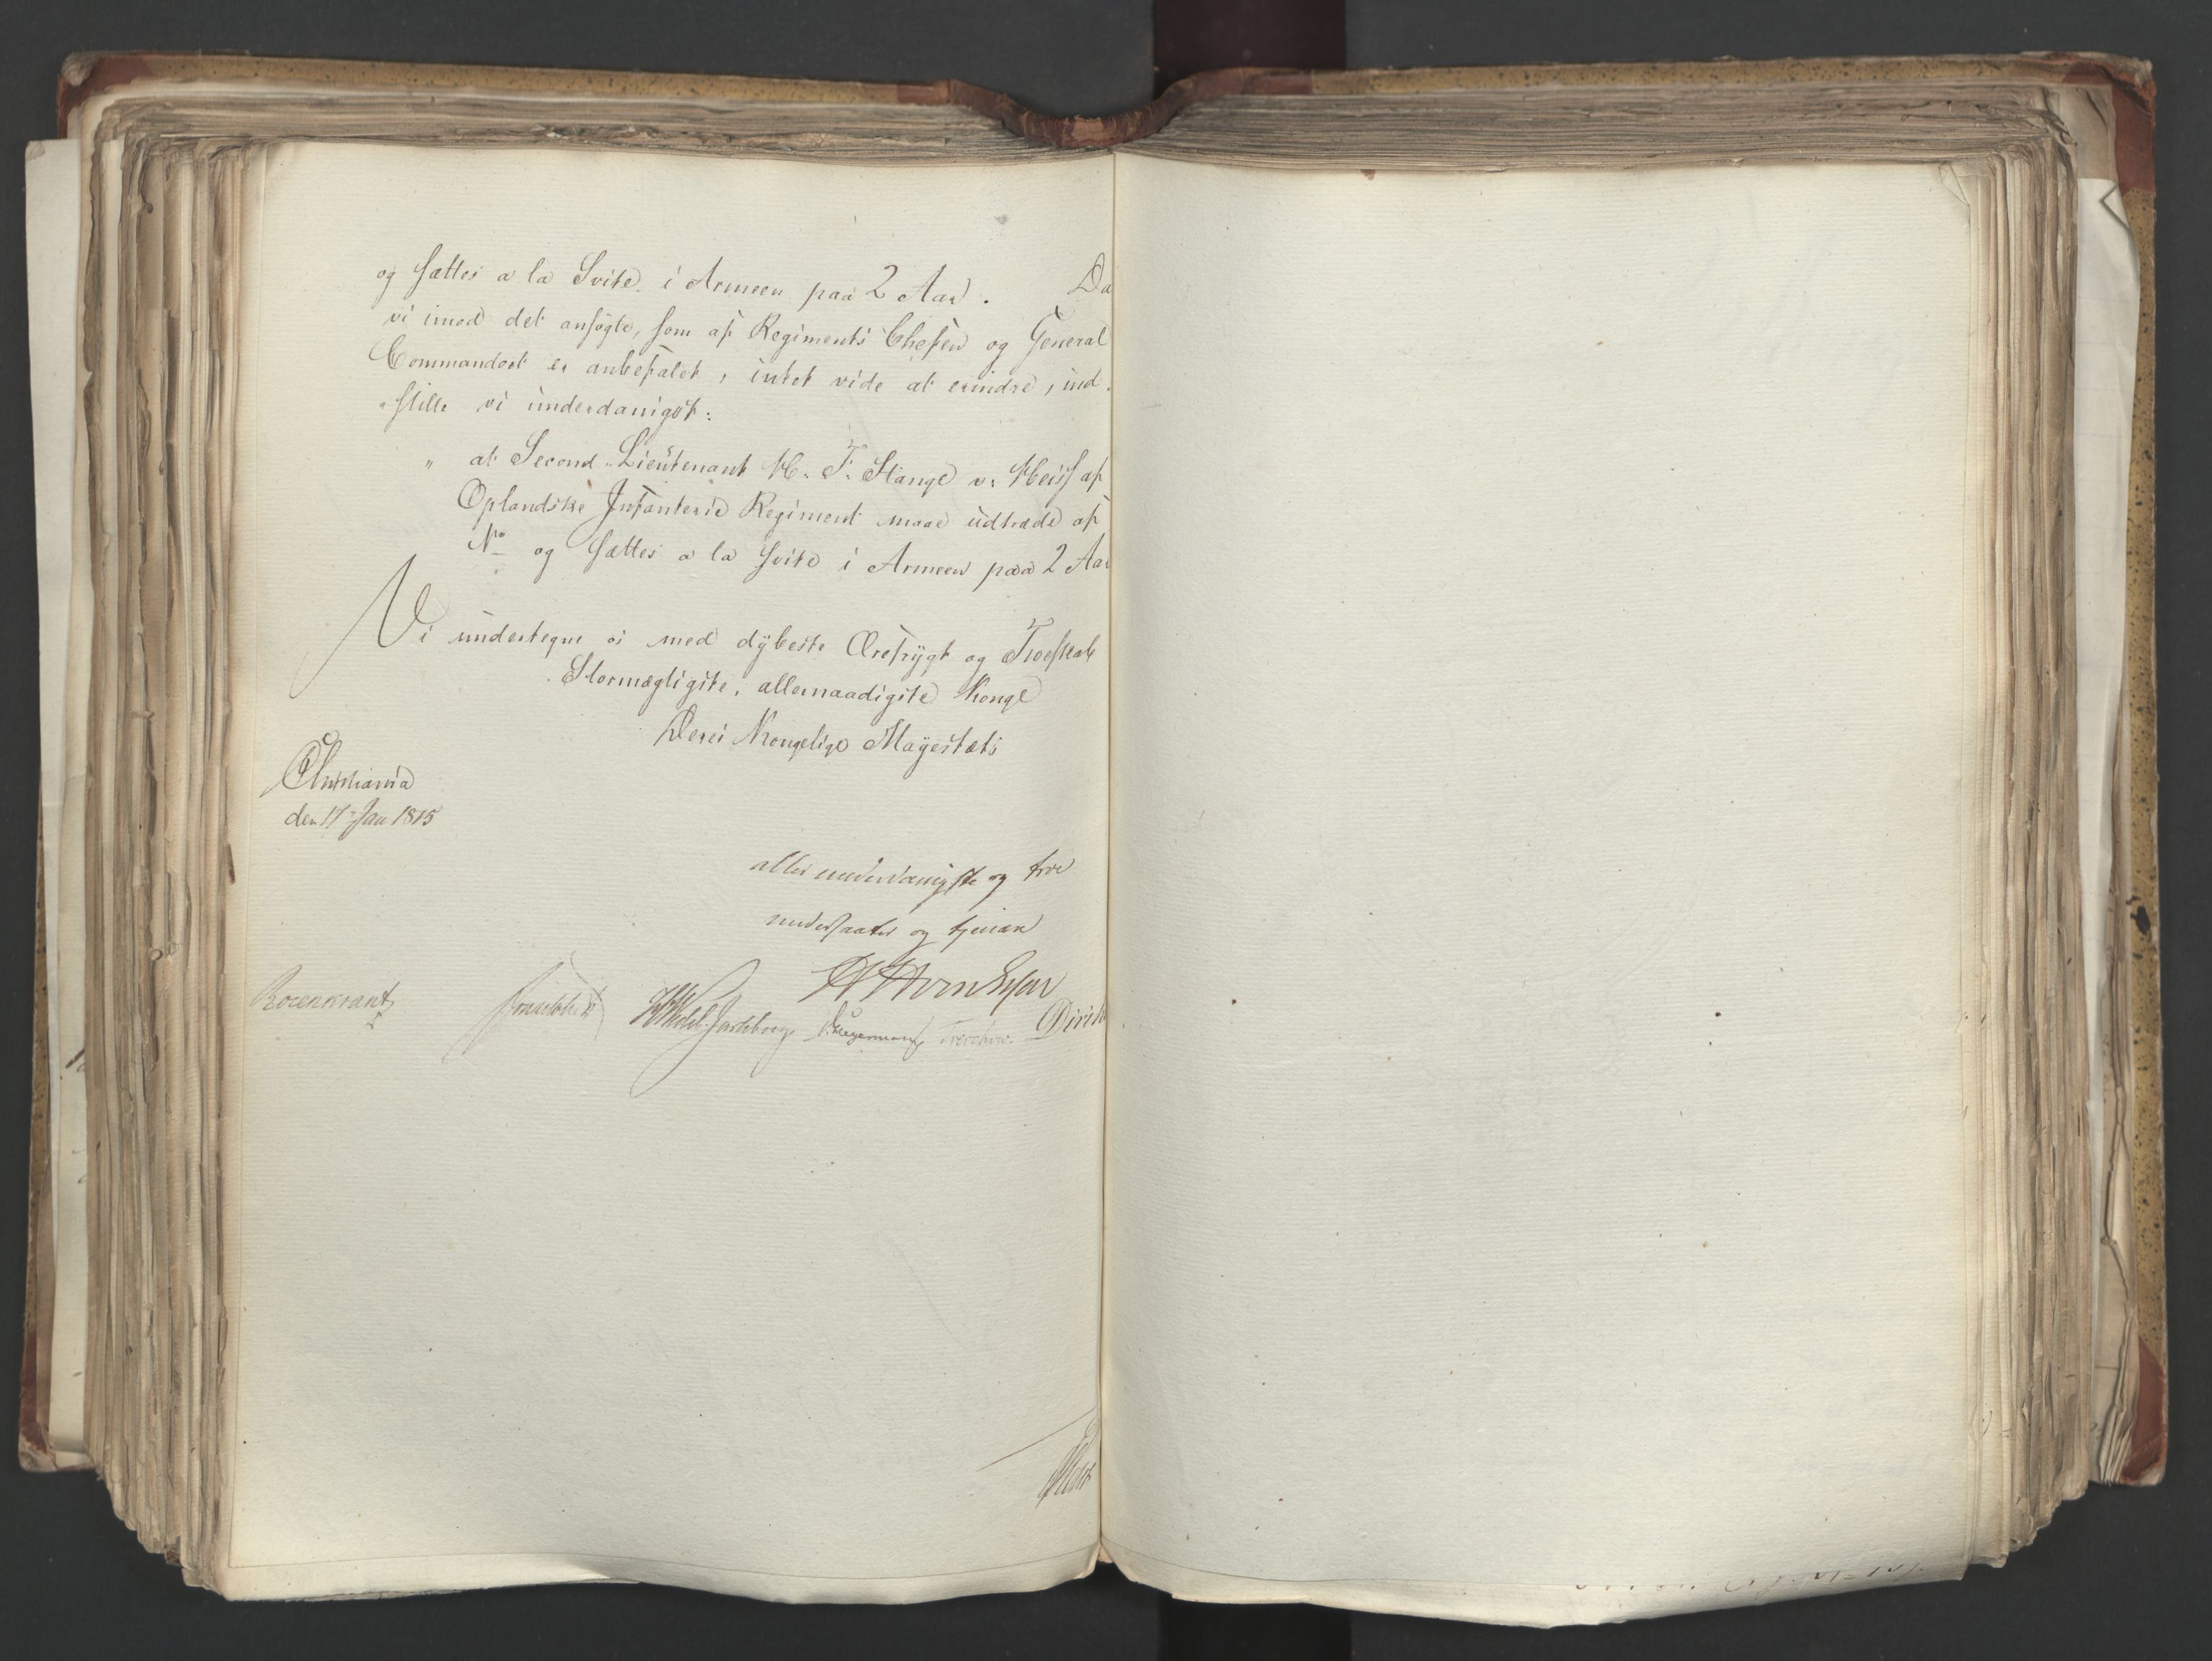 og sættes a la Svite i Armeen paa 2 Aar. Da
vi imod det ansøgte, som af Regiments Chefen og General
Commandoet er anbefalet, intet vide at erindre, ind-
stille vi underdanigst:
" at Second-Lieutenant H. F. Stange v. Heiss af
Oplandske Infanterie Regiment maae udtræde af
No og sættes a la Svite i Armeen paa 2 Aar
Vi undertegne os med dybeste Ærefrygt og Troeskab
Stormægtigste, allernaadigste Konge
Deres Kongelige Mayestæts
Christiania
den 17 Jan 1815
allerunderdanigste og troe
undersaatter og tjenere
Rosenkrantz
HWedel-Jarlsberg
D. Hegermann
Treschow.